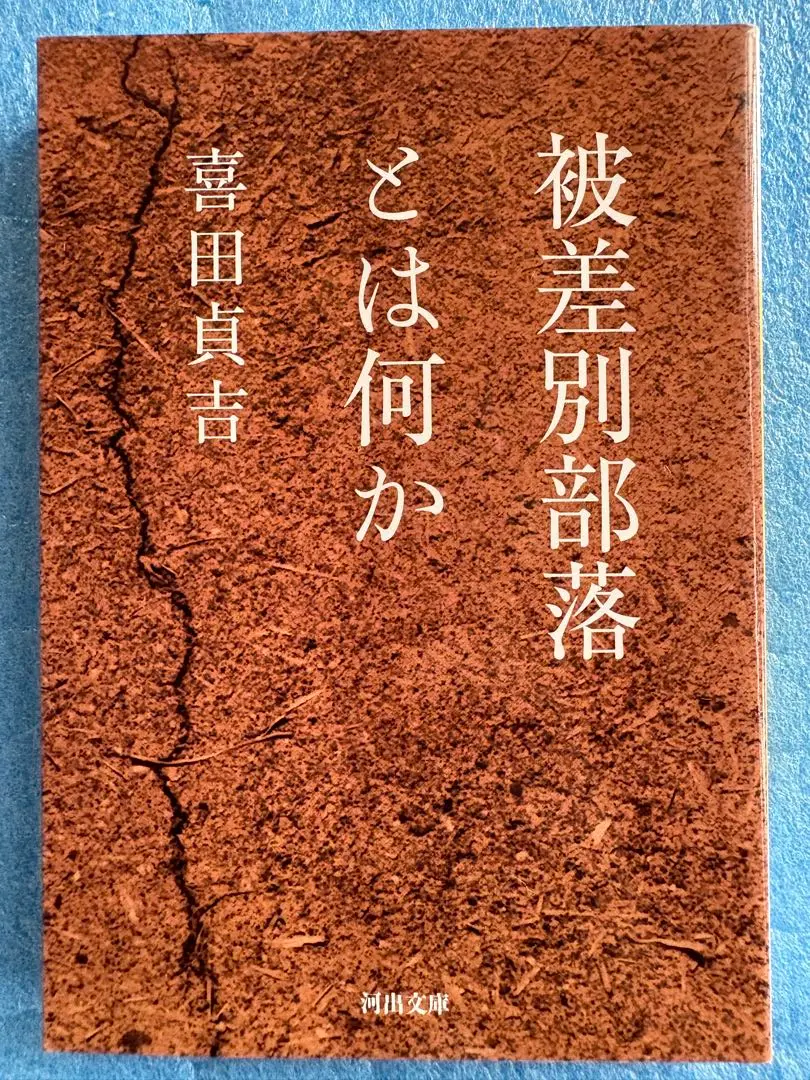 被差別部落
とは何か
喜田貞吉
河出文庫